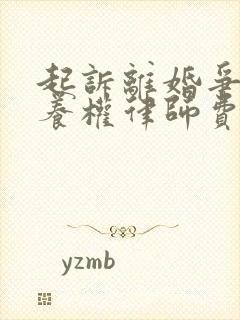 起訴離婚爭
養權律師費
yzmb